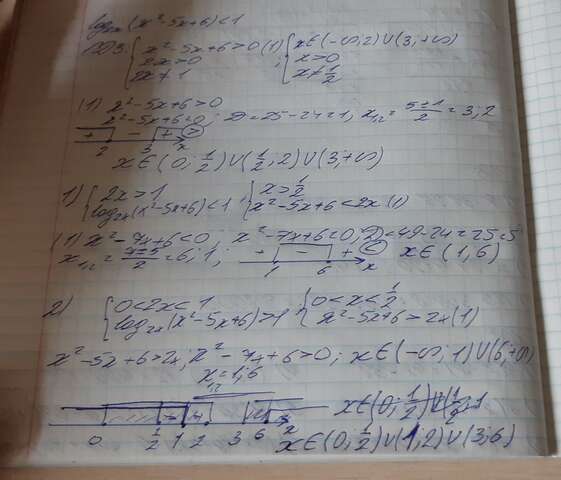 log₂ₓ(x²-5x+6)<1
ОДЗ: { x²-5x+6>0 (1) { x∈(-∞,2)∪(3,+∞)
2x>0 ; x>0
2x≠1 x≠1/2
(1) x²-5x+6>0
x²-5x+6=0; D=25-24=1, x₁,₂ = (5±1)/2 = 3; 2
+ - + >
2 3 x
x∈(0; 1/2)∪(1/2; 2)∪(3,+∞)
1) { 2x>1 { x>1/2
log₂ₓ(x²-5x+6)<1 x²-5x+6<2x (1)
(1) x²-7x+6<0 x²-7x+6=0, D=49-24=25=5
x₁,₂ = (7±5)/2 = 6; 1, + - + < x∈(1,6)
1 6 x
2) { 0<2x<1 { 0<x<1/2
log₂ₓ(x²-5x+6)>1 x²-5x+6>2x (1)
x²-5x+6>2x, x²-7x+6>0; x∈(-∞,1)∪(6,+∞)
x₁,₂=1; 6
x∈(0, 1/2)∪(1/2; 1
0 1/2 1 2 3 6 x
x∈(0; 1/2)∪(1,2)∪(3,6)